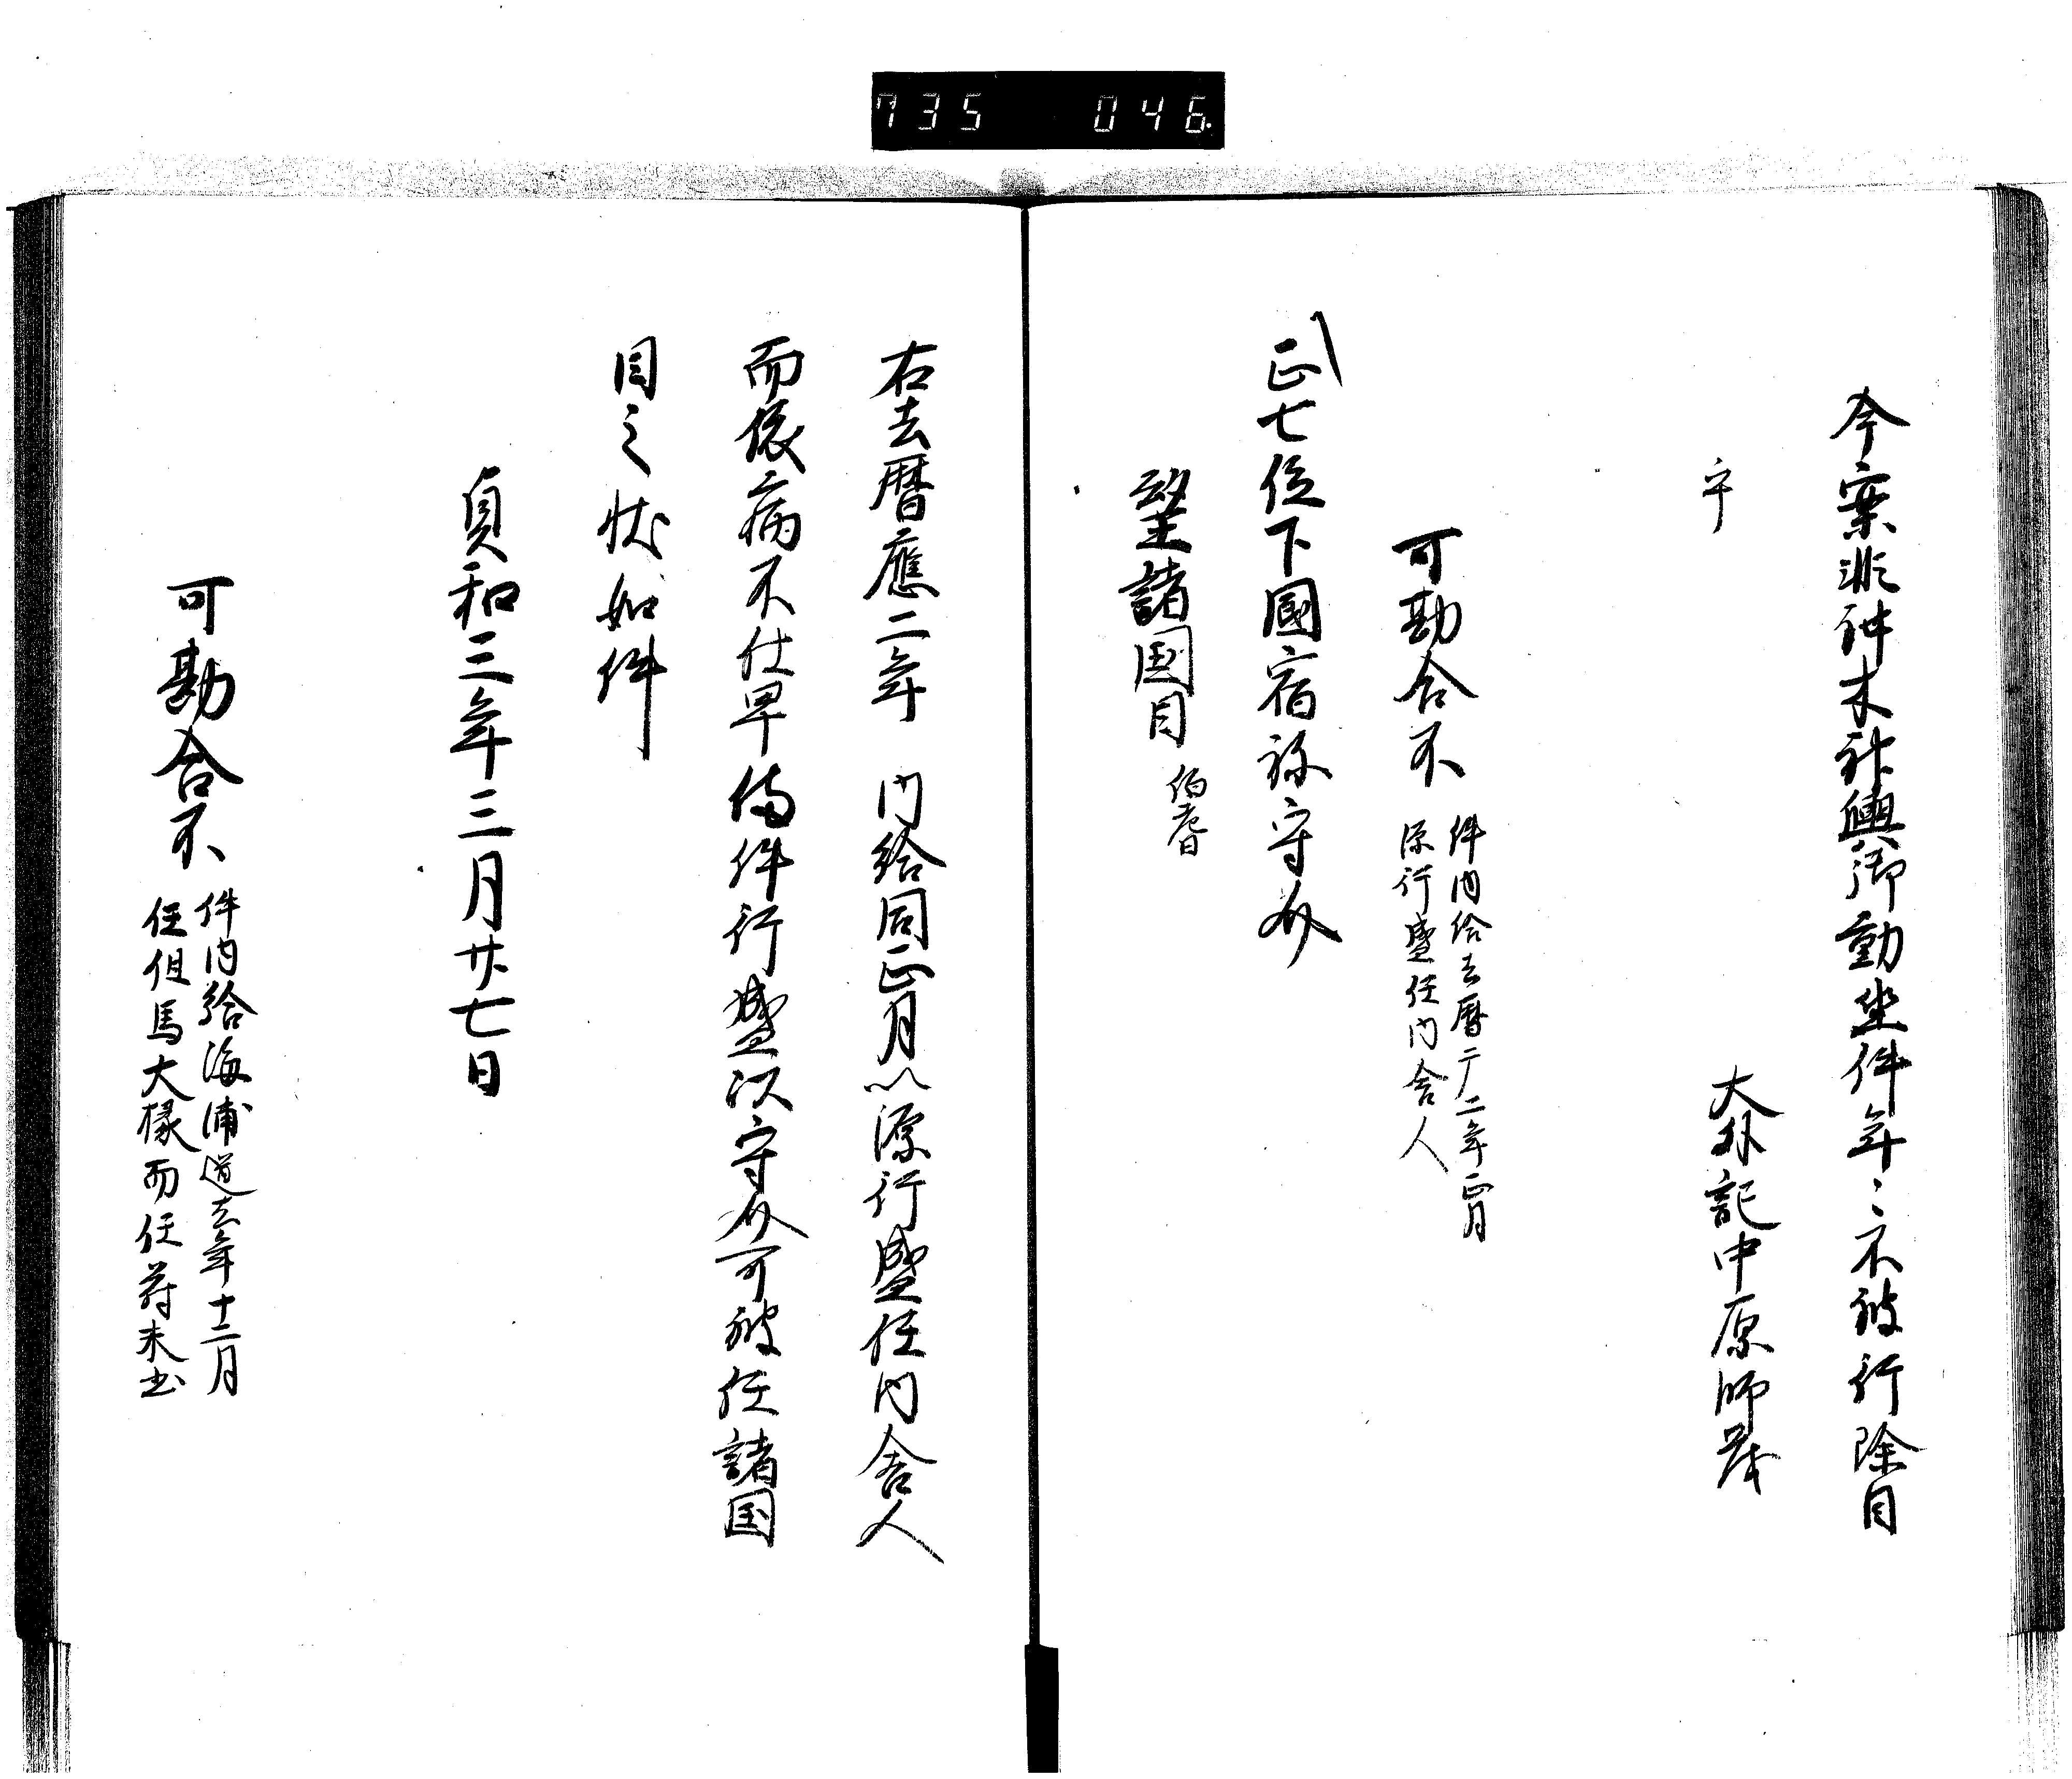 735 046
今案非神木神輿御動坐件年〻不被行除目
大外記中原師茂
可勘合不 件内給去暦广二年正月
源行盛任内舎人
正七位下國宿祢守久
望諸国目 伯耆
右去暦應二年 内給同正月以源行盛任内舎人
而依病不仕早停件行盛以守久可被任諸国
目之状如件
貞和三年三月廿七日
可勘合不 件内給海浦道去年十二月
任但馬大掾而任符未出